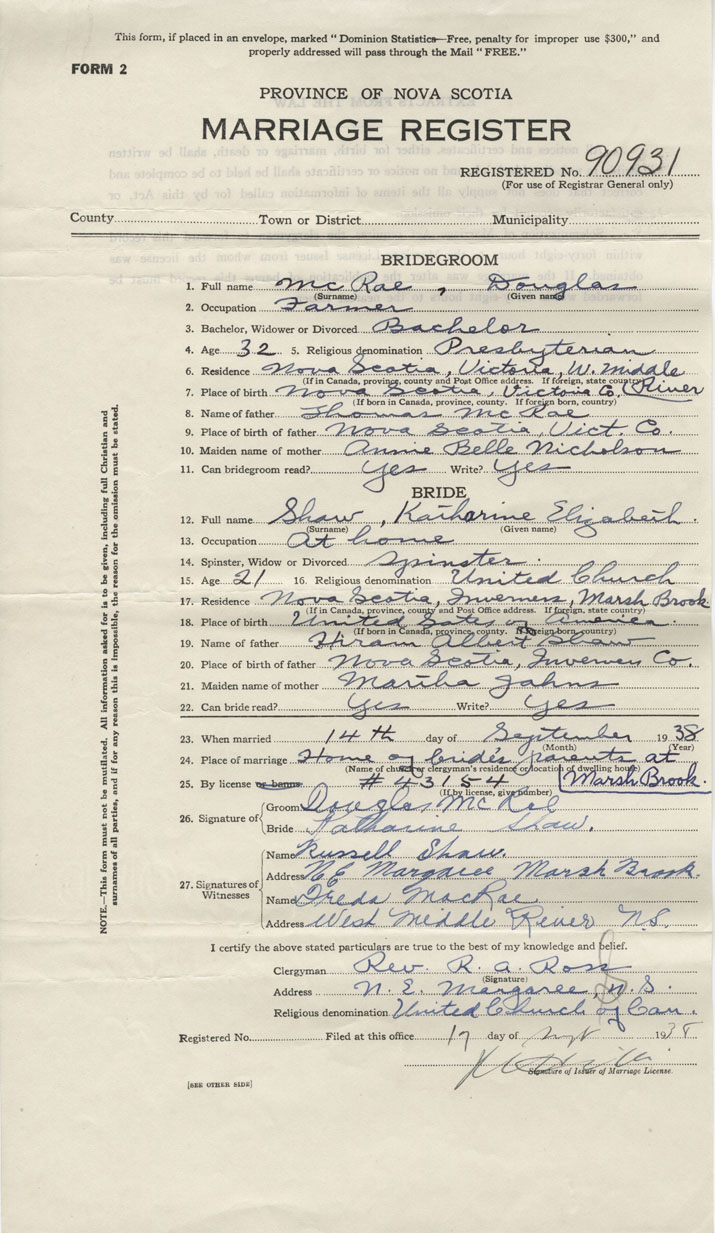 This form, if placed in an envelope, marked "Dominion Statistics—Free, penalty for improper use $300," and
properly addressed will pass through the Mail "FREE."
FORM 2
PROVINCE OF NOVA SCOTIA
MARRIAGE REGISTER
REGISTERED No. 90931
(For use of Registrar General only)
County Town or District Municipality
BRIDEGROOM
1. Full name McRae, Douglas
(Surname) (Given name)
2. Occupation Farmer
3. Bachelor, Widower or Divorced Bachelor
4. Age 32 5. Religious denomination Presbyterian
6. Residence Nova Scotia, Victoria, W. Middle
(If in Canada, province, county and Post Office address. If foreign, state country)
River
7. Place of birth Nova Scotia, Victoria Co.
(If born in Canada, province, county. If foreign born, country)
8. Name of father Thomas McRae
9. Place of birth of father Nova Scotia Vict. Co.
10. Maiden name of mother Annie Belle Nicholson
11. Can bridegroom read? Yes Write? Yes
BRIDE
12. Full name Shaw, Katharine Elizabeth.
(Surname) (Given name)
13. Occupation At home
14. Spinster, Widow or Divorced Spinster.
15. Age 21 16. Religious denomination United Church
17. Residence Nova Scotia, Inverness, Marsh Brook
(If in Canada, province, county and Post Office address. If foreign, state country)
18. Place of birth United Sates of America.
(If born in Canada, province, county. If foreign born, country)
19. Name of father Hiram Albert Shaw
20. Place of birth of father Nova Scotia, Inverness Co.
21. Maiden name of mother Martha Jahns
22. Can bride read? Yes Write? Yes
23. When married 14th day of September 1938
(Month) (Year)
24. Place of marriage Home of bride's parents at
(Name of church or clergyman's residence or location of dwelling house)
Marsh Brook.
25. By license or banns # 43154
(If by license, give number)
26. Signature of
Groom Douglas McRae
Bride Katharine Shaw.
27. Signatures of Witnesses
Name Russell Shaw.
Address N E Margaree Marsh Brook.
Name Freda MacRae
Address West Middle River N.S.
I certify the above stated particulars are true to the best of my knowledge and belief.
Clergyman Rev. R. A. Ross
(Signature)
Address N. E. Margaree, N. S.
Religious denomination United Church of Can.
Registered No. Filed at this office 17 day of Sept 1938
Signature of Issuer of Marriage License.
[SEE OTHER SIDE]
NOTE.—This form must not be mutilated. All information asked for is to be given, including full Christian and
surnames of all parties, and if for any reason this is impossible, the reason for the omission must be stated.